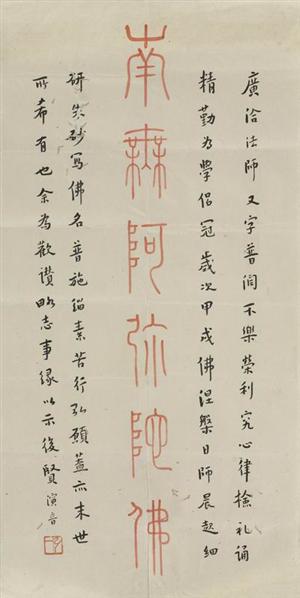 廣洽法師又字普潤不樂榮利究心律檢禮誦
精勤為學侶冠歲次甲戌佛涅槃日師晨起細
南無阿彌陀佛
研朱砂寫佛名普施緇素苦行弘願蓋亦末世
所希有也余為歡讚略志事緣以示後賢演音